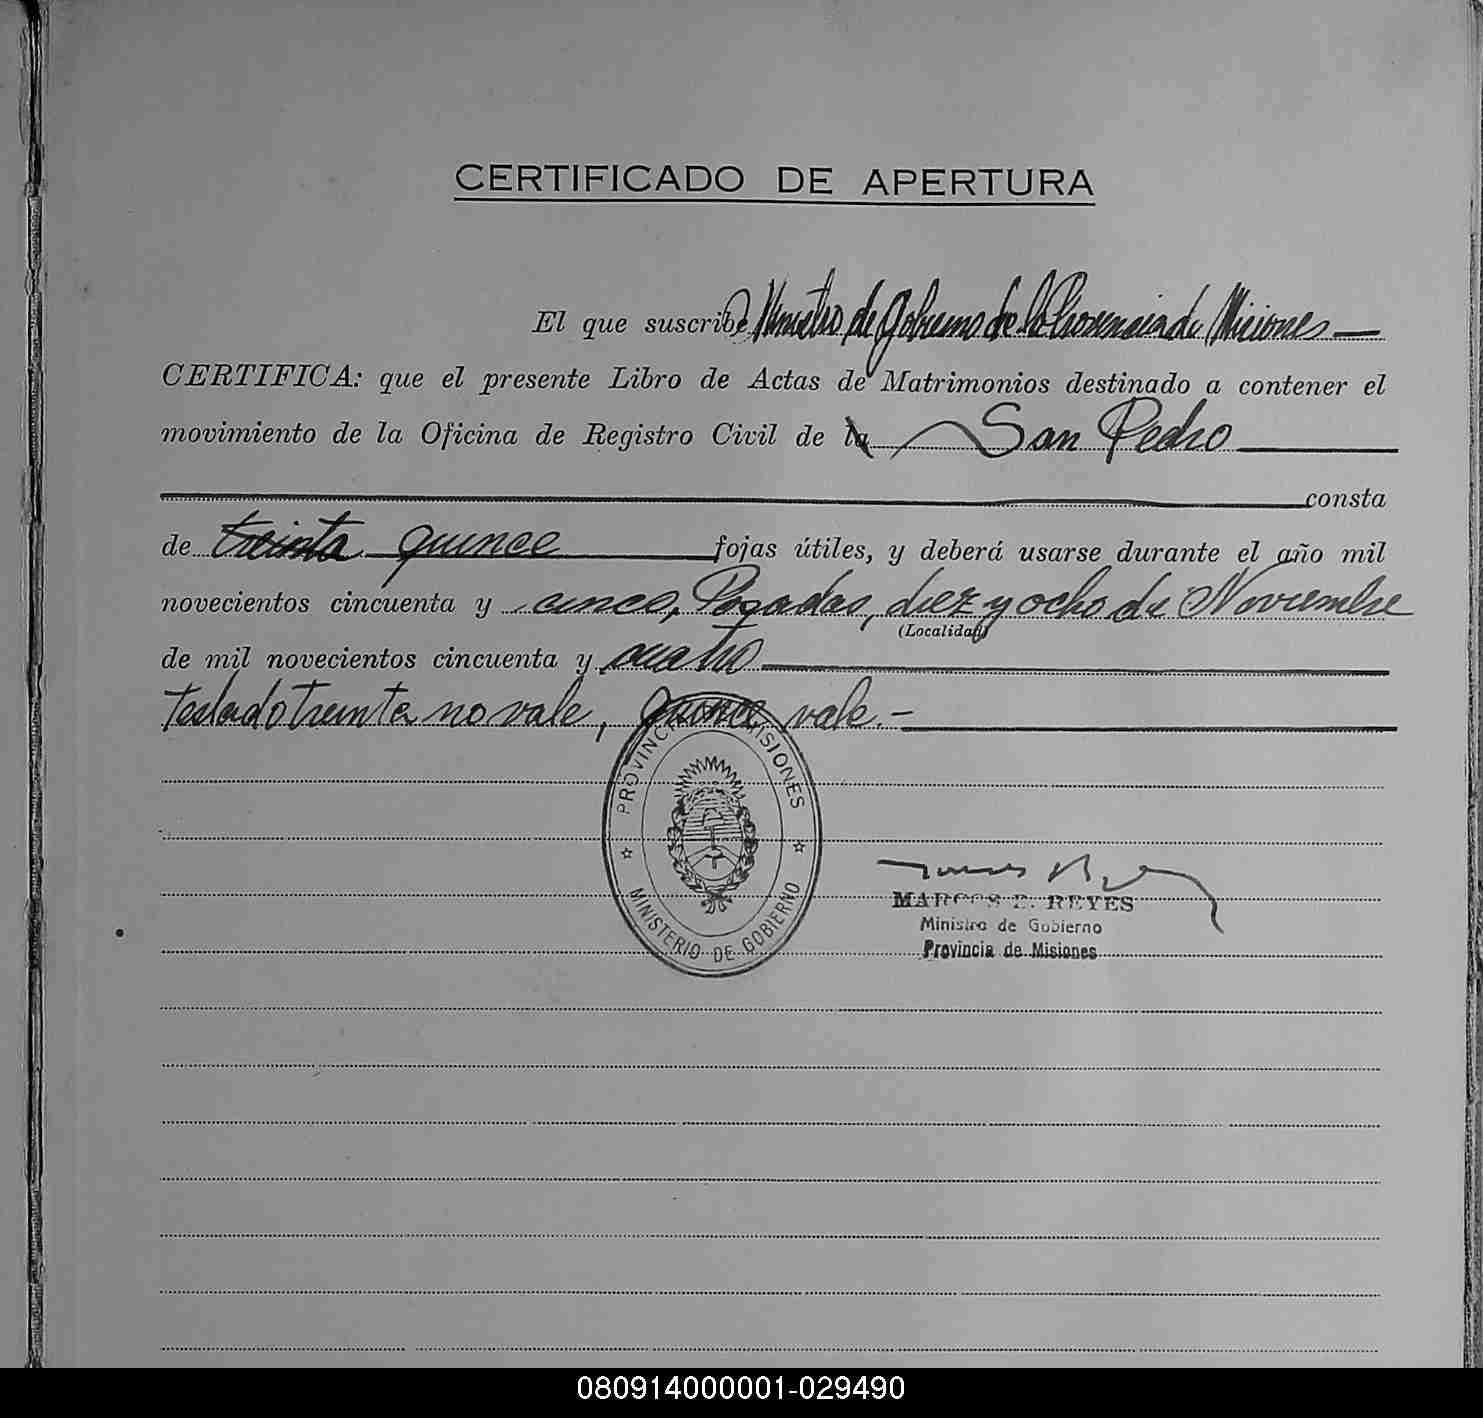 CERTIFICADO DE APERTURA
El que suscribe, Ministro de Gobierno de la Provincia de Misiones
CERTIFICA: que el presente Libro de Actas de Matrimonios destinado a contener el
movimiento de la Oficina de Registro Civil de la San Pedro
consta
de treinta quince fojas útiles, y deberá usarse durante el año mil
novecientos cincuenta y cinco, Posadas, diez y ocho de Noviembre
(Localidad)
de mil novecientos cincuenta y cuatro
Testado treinta no vale, quince vale.-
PROVINCIA MISIONES
MINISTERIO DE GOBIERNO
MARCOS E. REYES
Ministro de Gobierno
Provincia de Misiones
080914000001-029490